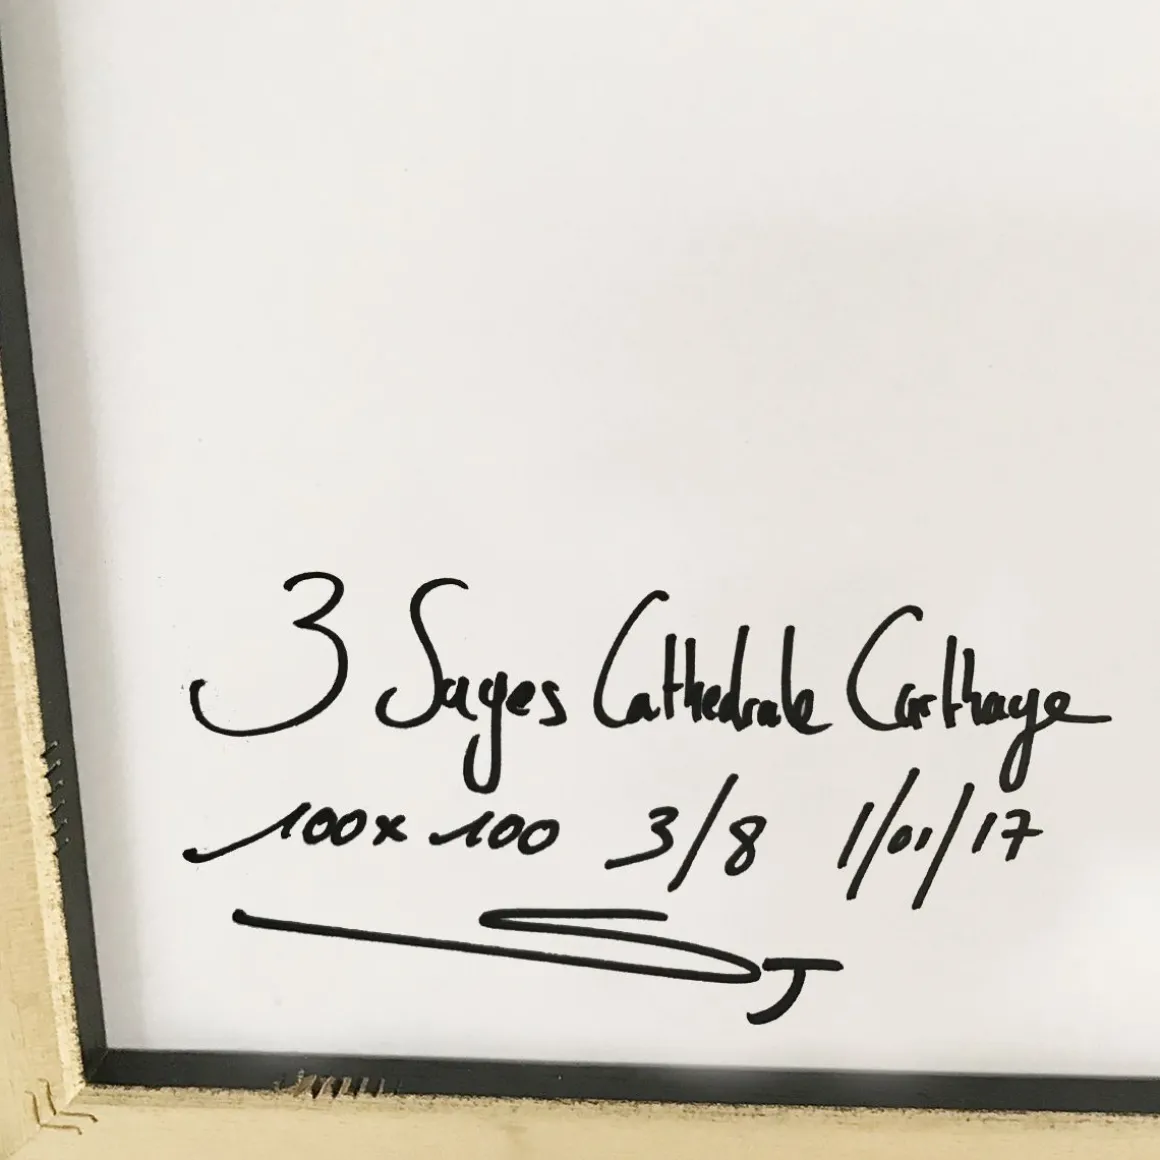 3 Sages Cathédrale Carthage
100x100 3/8 1/01/17
SJ